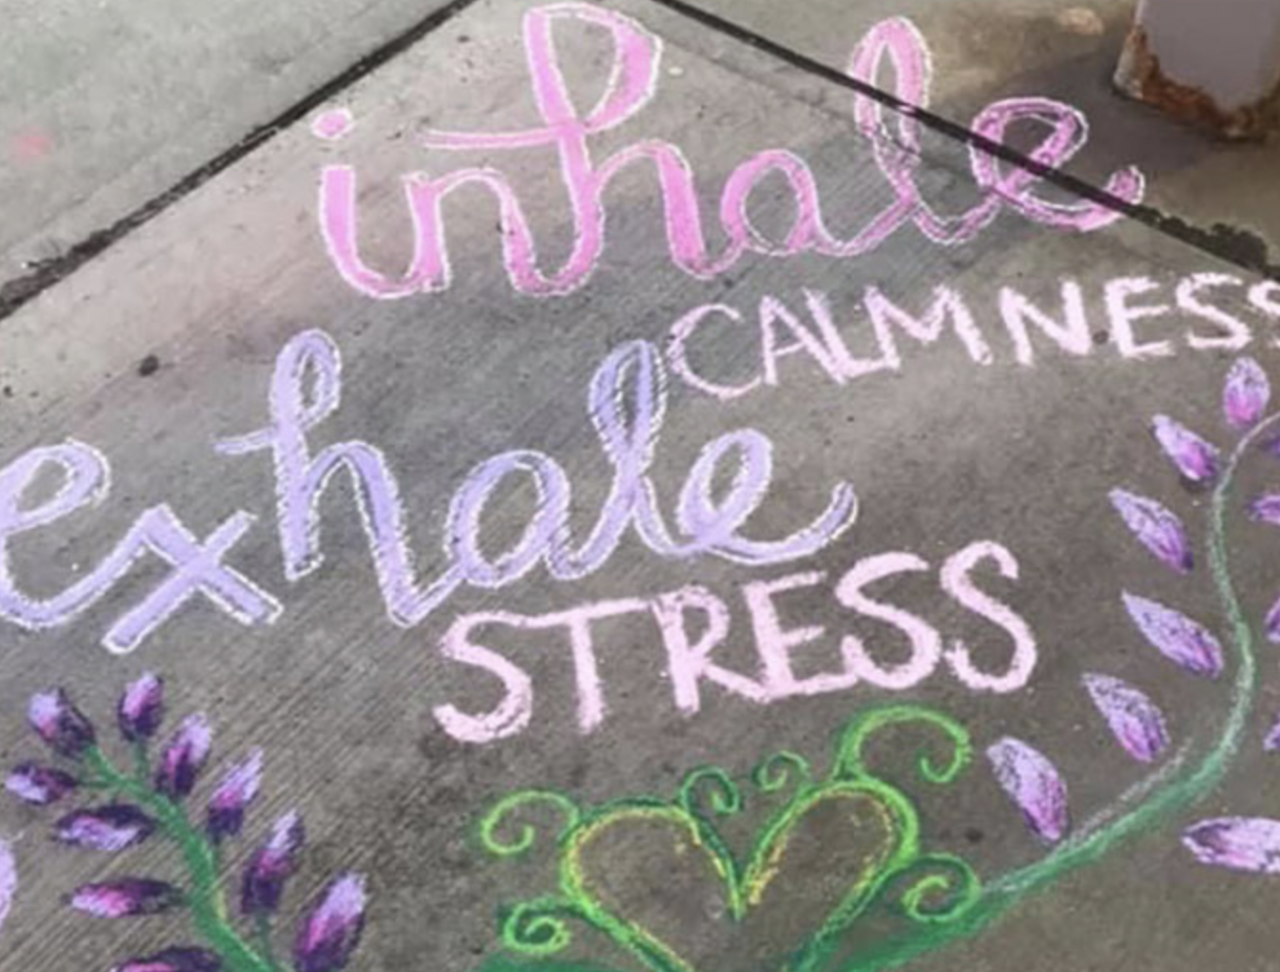 inhale
CALMNESS
exhale
STRESS